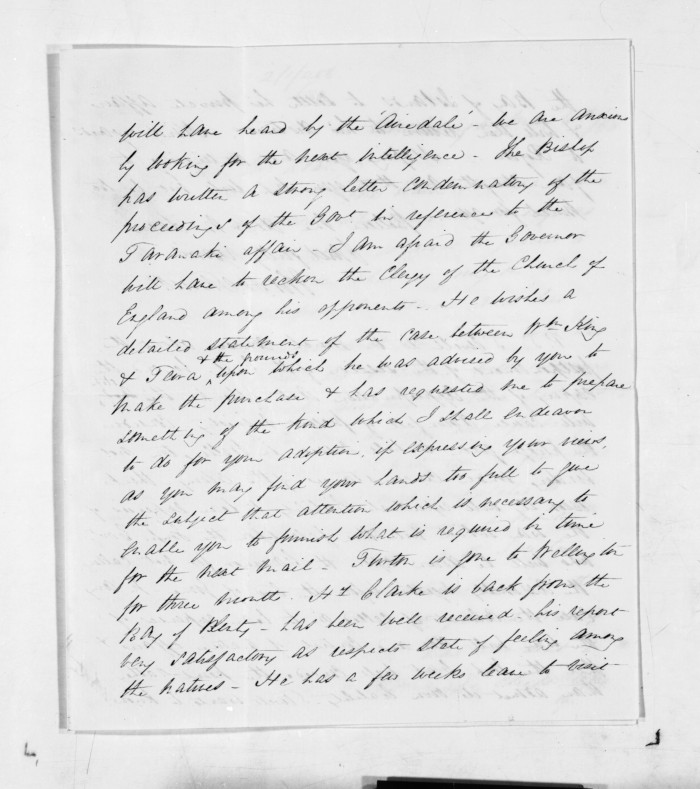 will have heard by the 'Airedale' - we are anxious
by looking for the next intelligence - The Bishop
has written a strong letter condemnatory of the
proceedings of the Govt. in reference to the
Taranaki affair - I am afraid the Governor
will have to reckon the Clergy of the Church of
England among his opponents - He wishes a
detailed statement of the case between Wm King
& Teira & the grounds upon which he was advised by you to
make the purchase & has requested me to prepare
something of the kind which I shall endeavor
to do for your adoption, if expressing your views,
as you may find your hands too full to give
the subject that attention which is necessary to
enable you to furnish what is required in time
for the next mail - Turton is gone to Wellington
for three months. Hy Clarke is back from the
Bay of Plenty - has been well received - his report
very satisfactory as respects state of feeling among
the natives - He has a few weeks leave to visit